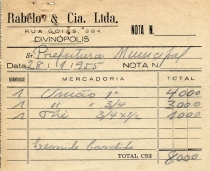 Rabêlo & Cia. Ltda.
RUA GOIÁS, 684 NOTA N.
DIVINÓPOLIS
Sr. Prefeitura Municipal
Data 28/1/1955 NOTA N
MERCADORIA TOTAL
1 União 1" 4000
1 " " 3/4 3000
1 3/4 x 1/2 1000
TOTAL CR$ 8000